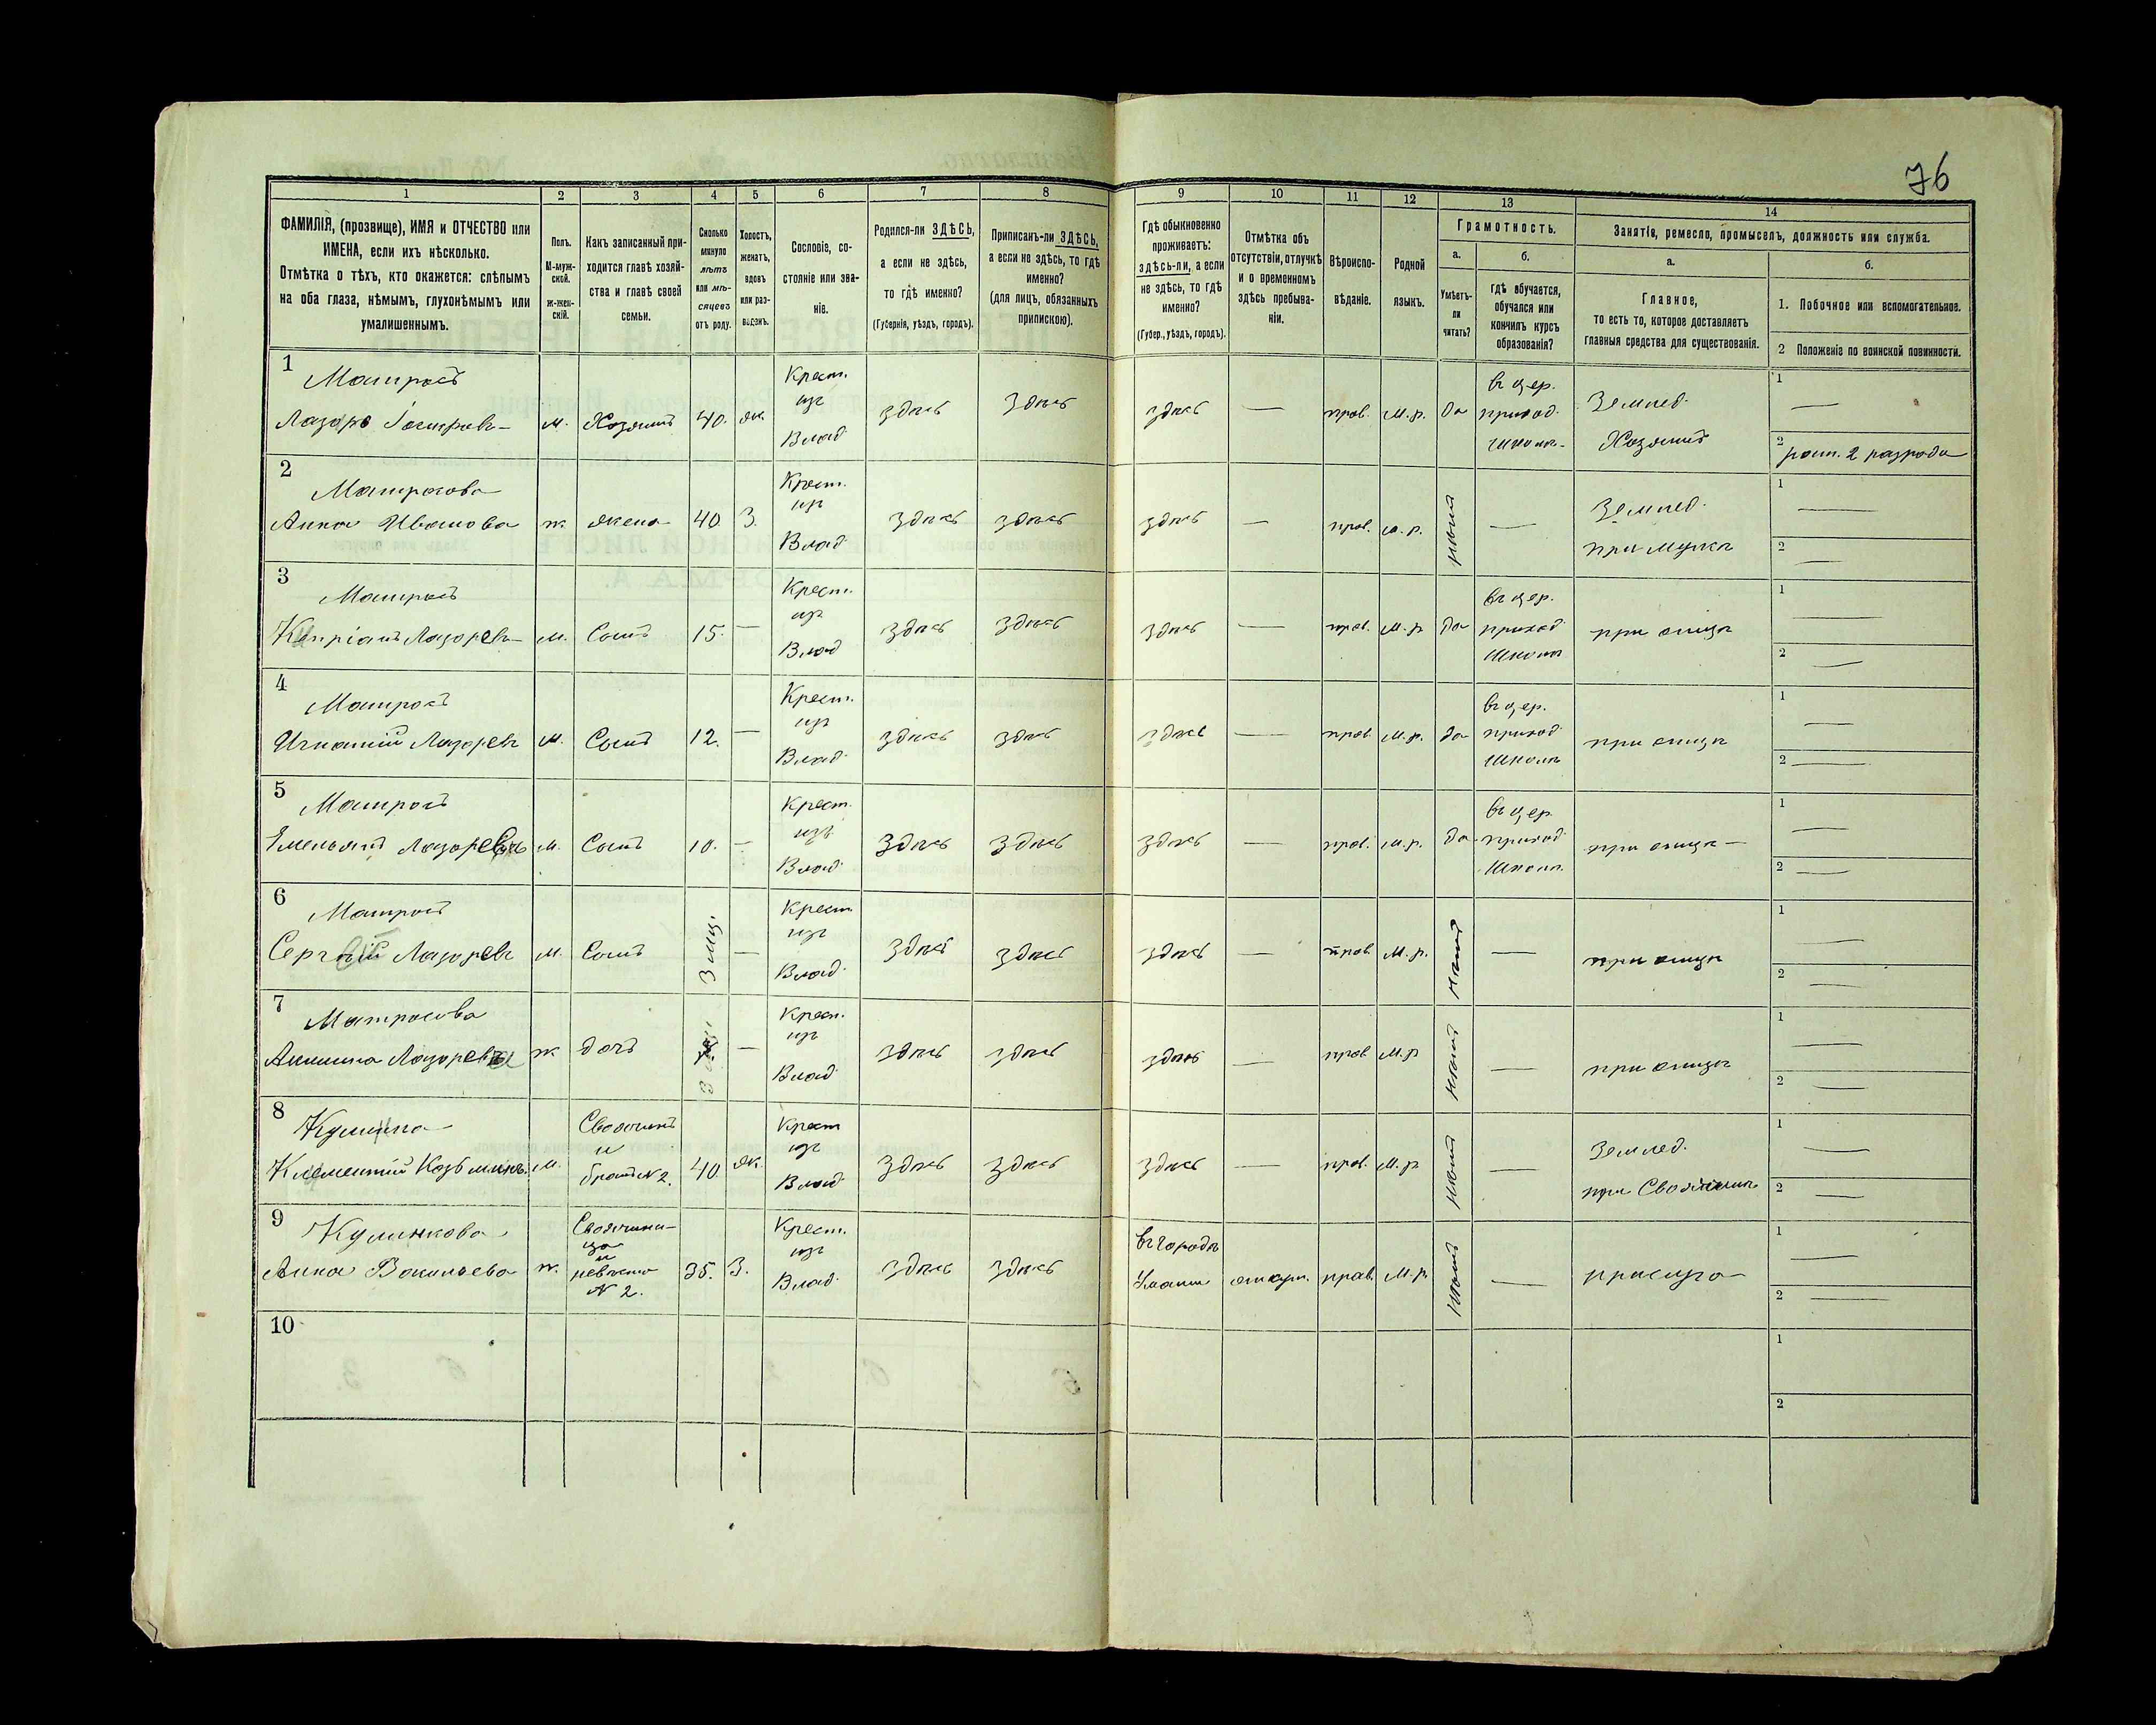 76
1 2 3 4 5 6 7 8 9 10 11 12 13 14
ФАМИЛІЯ, (прозвище), ИМЯ и ОТЧЕСТВО или
ИМЕНА, если ихъ нѣсколько.
Отмѣтка о тѣхъ, кто окажется: слѣпымъ
на оба глаза, нѣмымъ, глухонѣмымъ или
умалишеннымъ.
Полъ.
М-муж-
ской.
ж-жен-
скій.
Какъ записанный при-
ходится главѣ хозяй-
ства и главѣ своей
семьи.
Сколько
минуло
лѣтъ
или мѣ-
сяцевъ
отъ роду.
Холостъ,
женатъ,
вдовъ
или раз-
веденъ.
Сословіе, со-
стояніе или зва-
ніе.
Родился-ли ЗДѢСЬ,
а если не здѣсь,
то гдѣ именно?
(Губернія, уѣздъ, городъ).
Приписанъ-ли ЗДѢСЬ,
а если не здѣсь, то гдѣ
именно?
(для лицъ, обязанныхъ
припискою).
Гдѣ обыкновенно
проживаетъ:
здѣсь-ли, а если
не здѣсь, то гдѣ
именно?
(Губер., уѣздъ, городъ).
Отмѣтка объ
отсутствіи, отлучкѣ
и о временномъ
здѣсь пребыва-
ніи.
Вѣроиспо-
вѣданіе.
Родной
языкъ.
Грамотность.
а.
Умѣетъ-
ли
читать?
б.
гдѣ обучается,
обучался или
кончилъ курсъ
образованія?
Занятія, ремесло, промыселъ, должность или служба.
а.
Главное,
то есть то, которое доставляетъ
главныя средства для существованія.
б.
1. Побочное или вспомогательное.
2 Положеніе по воинской повинности.
1
Матросъ Крест. въ цер. Землед. 1 —
изъ
Лазаръ м. Хозяинъ 40. ж. Влад. здѣсь здѣсь здѣсь — прав. м.р. да приход. школѣ Хозяинъ 2 рат. 2 разряда
2
Матросова Крест. Землед. 1 —
изъ
Анна Иванова ж. жена 40 З. Влад здѣсь здѣсь здѣсь — прав. м.р. нѣтъ — при мужѣ 2 —
3
Матросъ Крест. въ цер. 1 —
изъ
Кипріанъ Лазаревъ м. Сынъ 15. — Влад здѣсь здѣсь здѣсь — прав. м.р. да приход школѣ при отцѣ 2 —
4
Матросъ Крест. въ цер. 1 —
изъ
Игнатій Лазаревъ м. Сынъ 12. — Влад. здѣсь здѣсь здѣсь — прав. м.р. да приход. школѣ при отцѣ 2 —
5
Матросъ Крест. въ цер. 1 —
изъ
Емельянъ Лазаревъ м. Сынъ 10. — Влад. здѣсь здѣсь здѣсь — прав. м.р. да приход школѣ при отцѣ — 2 —
6
Матросъ Крест 1 —
изъ
Сергѣй Лазаревъ м. Сынъ — Влад. здѣсь здѣсь здѣсь — прав. м.р. нѣтъ — при отцѣ 2 —
7
Матросова Крест. 1 —
изъ
Лазарева ж дочь — Влад. здѣсь здѣсь здѣсь — прав м.р нѣтъ — при отцѣ 2 —
8
Своячинъ Крест Землед. 1 —
и изъ
Клементій м. братъ N 2. 40. ж. Влад здѣсь здѣсь здѣсь — прав. м.р. нѣтъ — при 2 —
9
Куликкова Своячини- Крест. въ городѣ 1 —
ца изъ
и
Анна ж. невѣстка N 2. 35. З. Влад. здѣсь здѣсь Умани прав. м.р. нѣтъ — 2 —
10
1
2